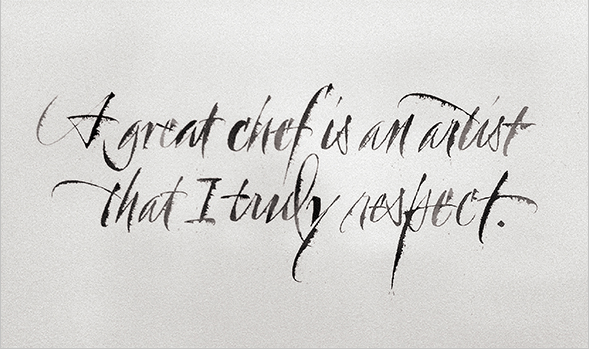 A great chef is an artist
that I truly respect.